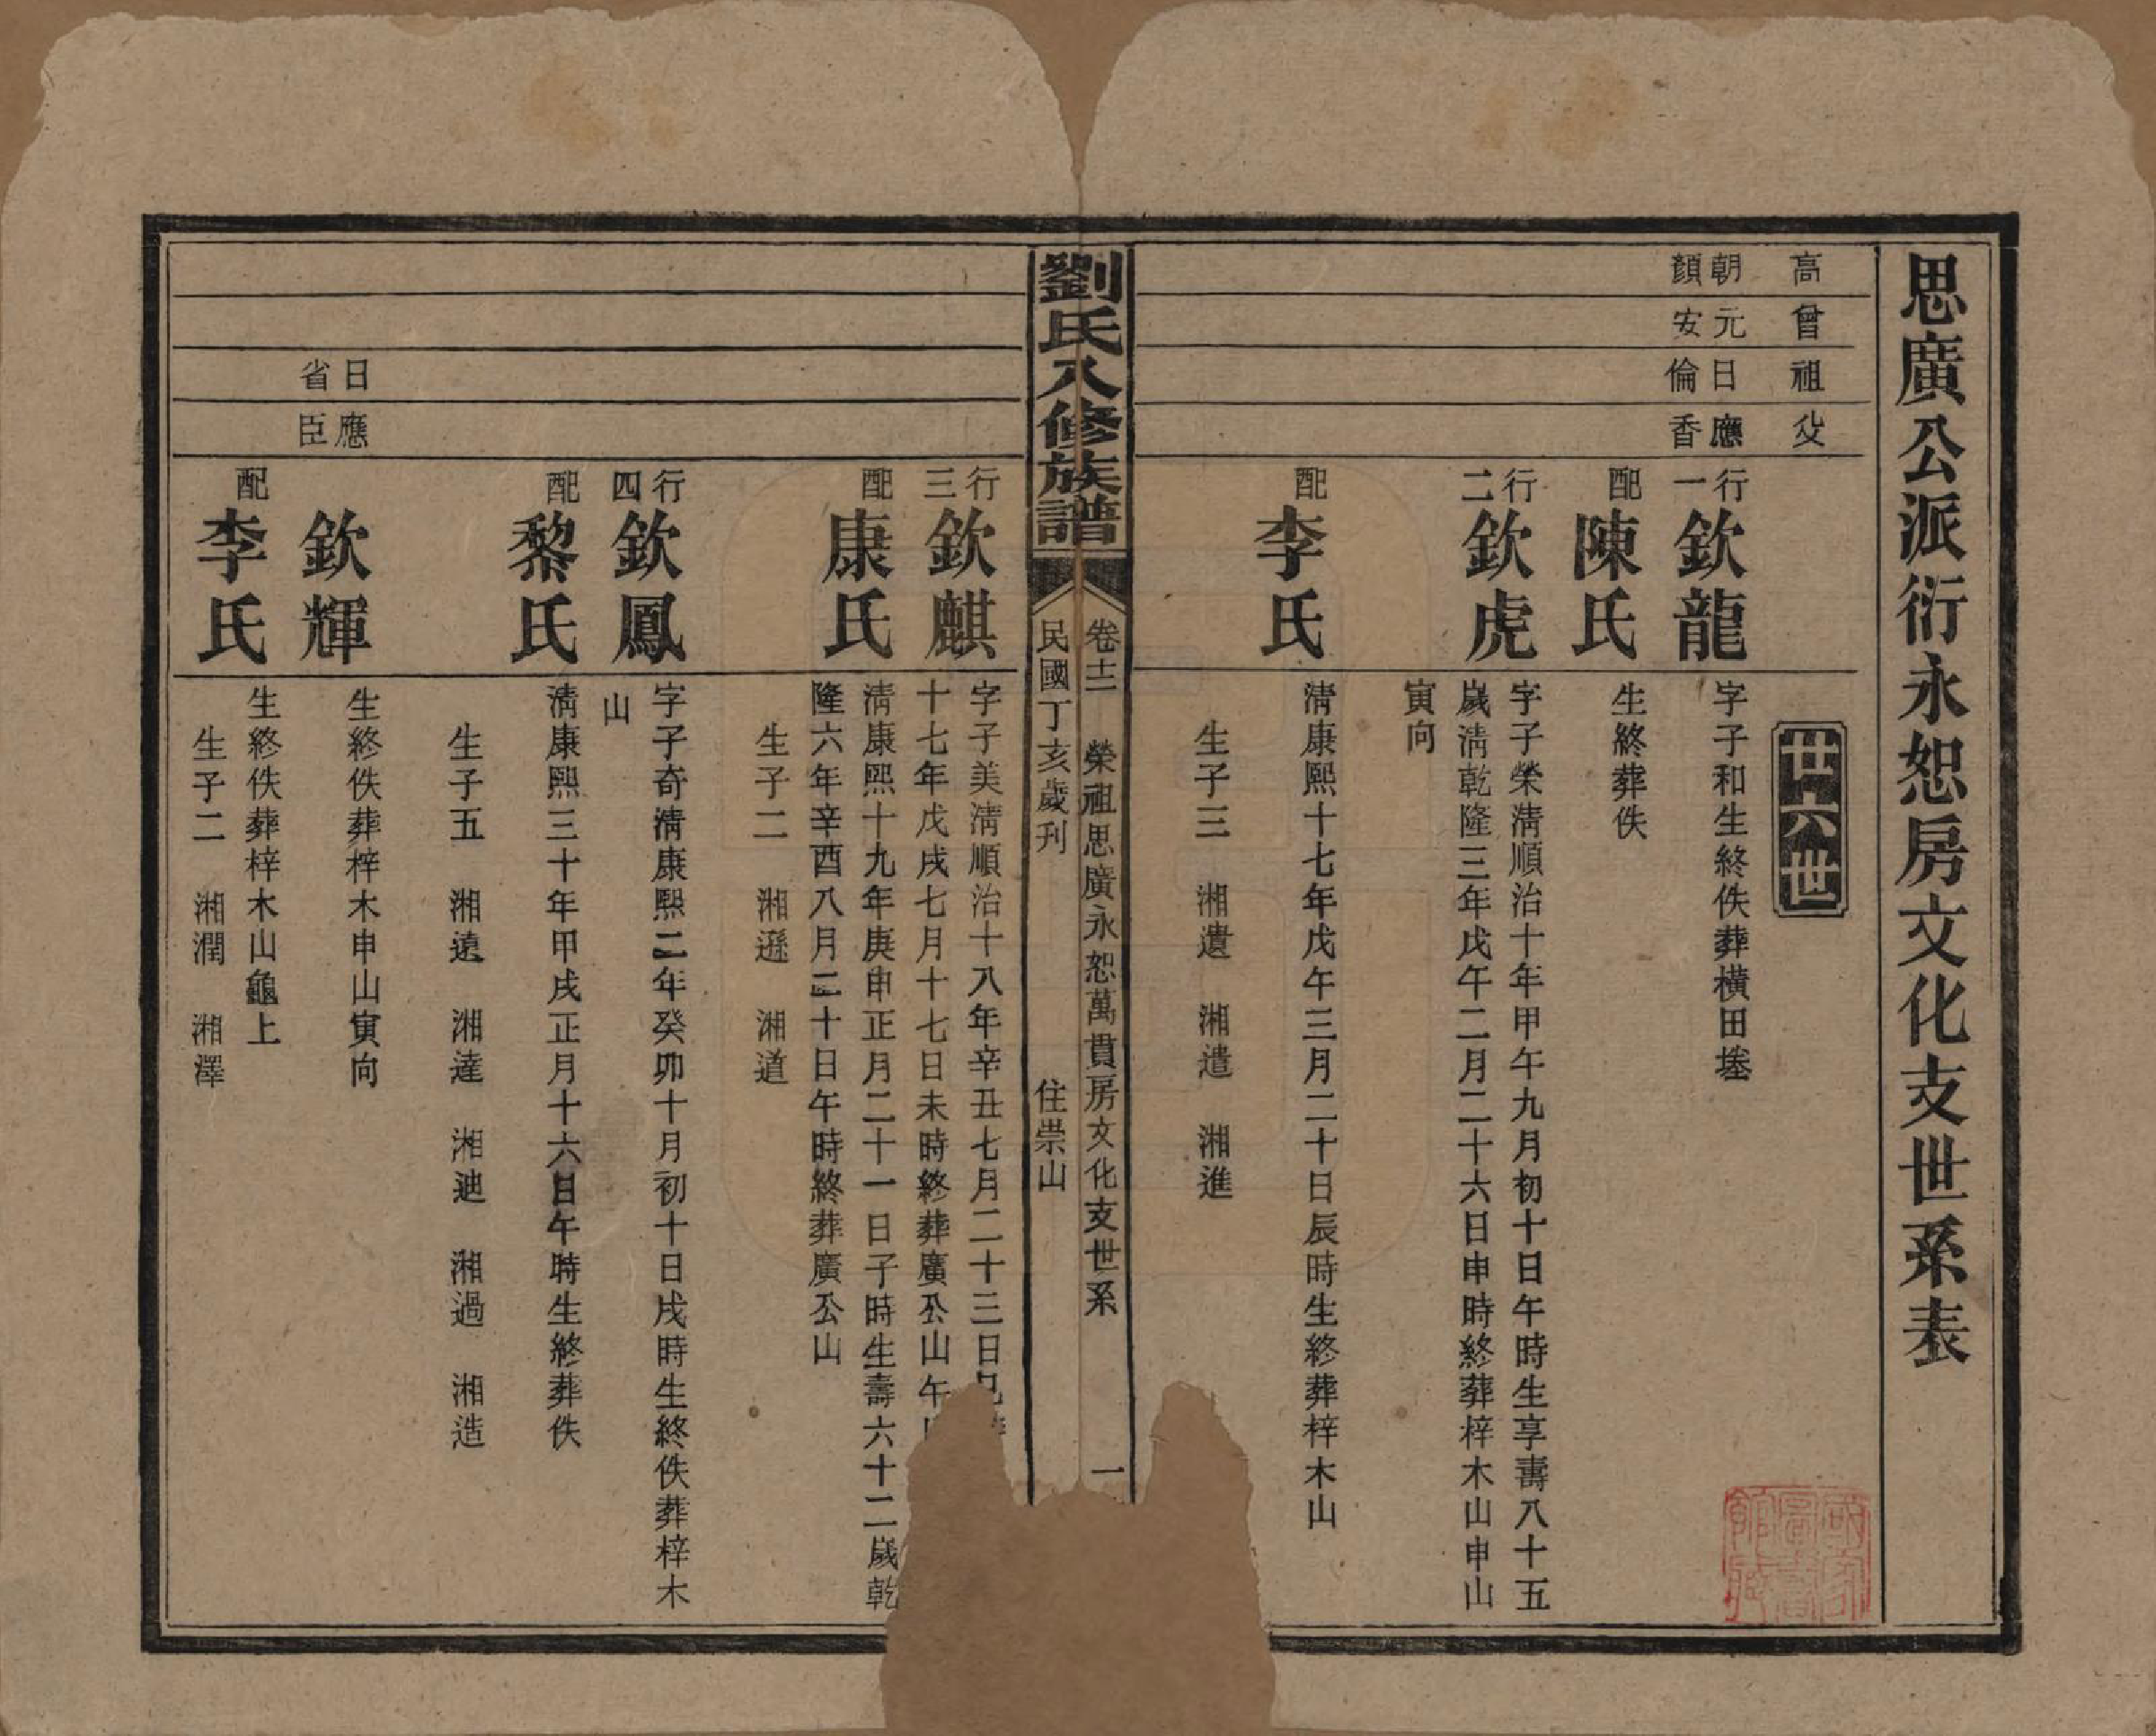 思廣公派衍永恕房文化支世系表
高 曾 祖 父
廿六世
朝顏
元安
日倫
應香
行一 欽龍
字子和生終佚葬橫田塂
配陳氏
生終葬佚
行二 欽虎
字子榮清順治十年甲午九月初十日午時生享壽八十五
歲清乾隆三年戊午二月二十六日申時終葬梓木山申山
寅向
配李氏
清康熙十七年戊午三月二十日辰時生終葬梓木山
生子三 湘遺 湘遣 湘進
劉氏八修族譜
卷十二 榮祖思廣永恕萬貫房文化支世系 一
民國丁亥歲刊 住崇山
行三 欽麒
字子美清順治十八年辛丑七月二十三日
十七年戊戌七月十七日未時終葬廣公山午
配康氏
清康熙十九年庚申正月二十一日子時生壽六十二歲乾
隆六年辛酉八月二十日午時終葬廣公山
生子二 湘遜 湘道
行四 欽鳳
字子奇清康熙二年癸卯十月初十日戌時生終佚葬梓木
山
配黎氏
清康熙三十年甲戌正月十六日午時生終葬佚
生子五 湘遠 湘達 湘迪 湘過 湘造
日省
應臣
欽輝
生終佚葬梓木申山寅向
配李氏
生終佚葬梓木山龜上
生子二 湘潤 湘澤
國家圖書館藏